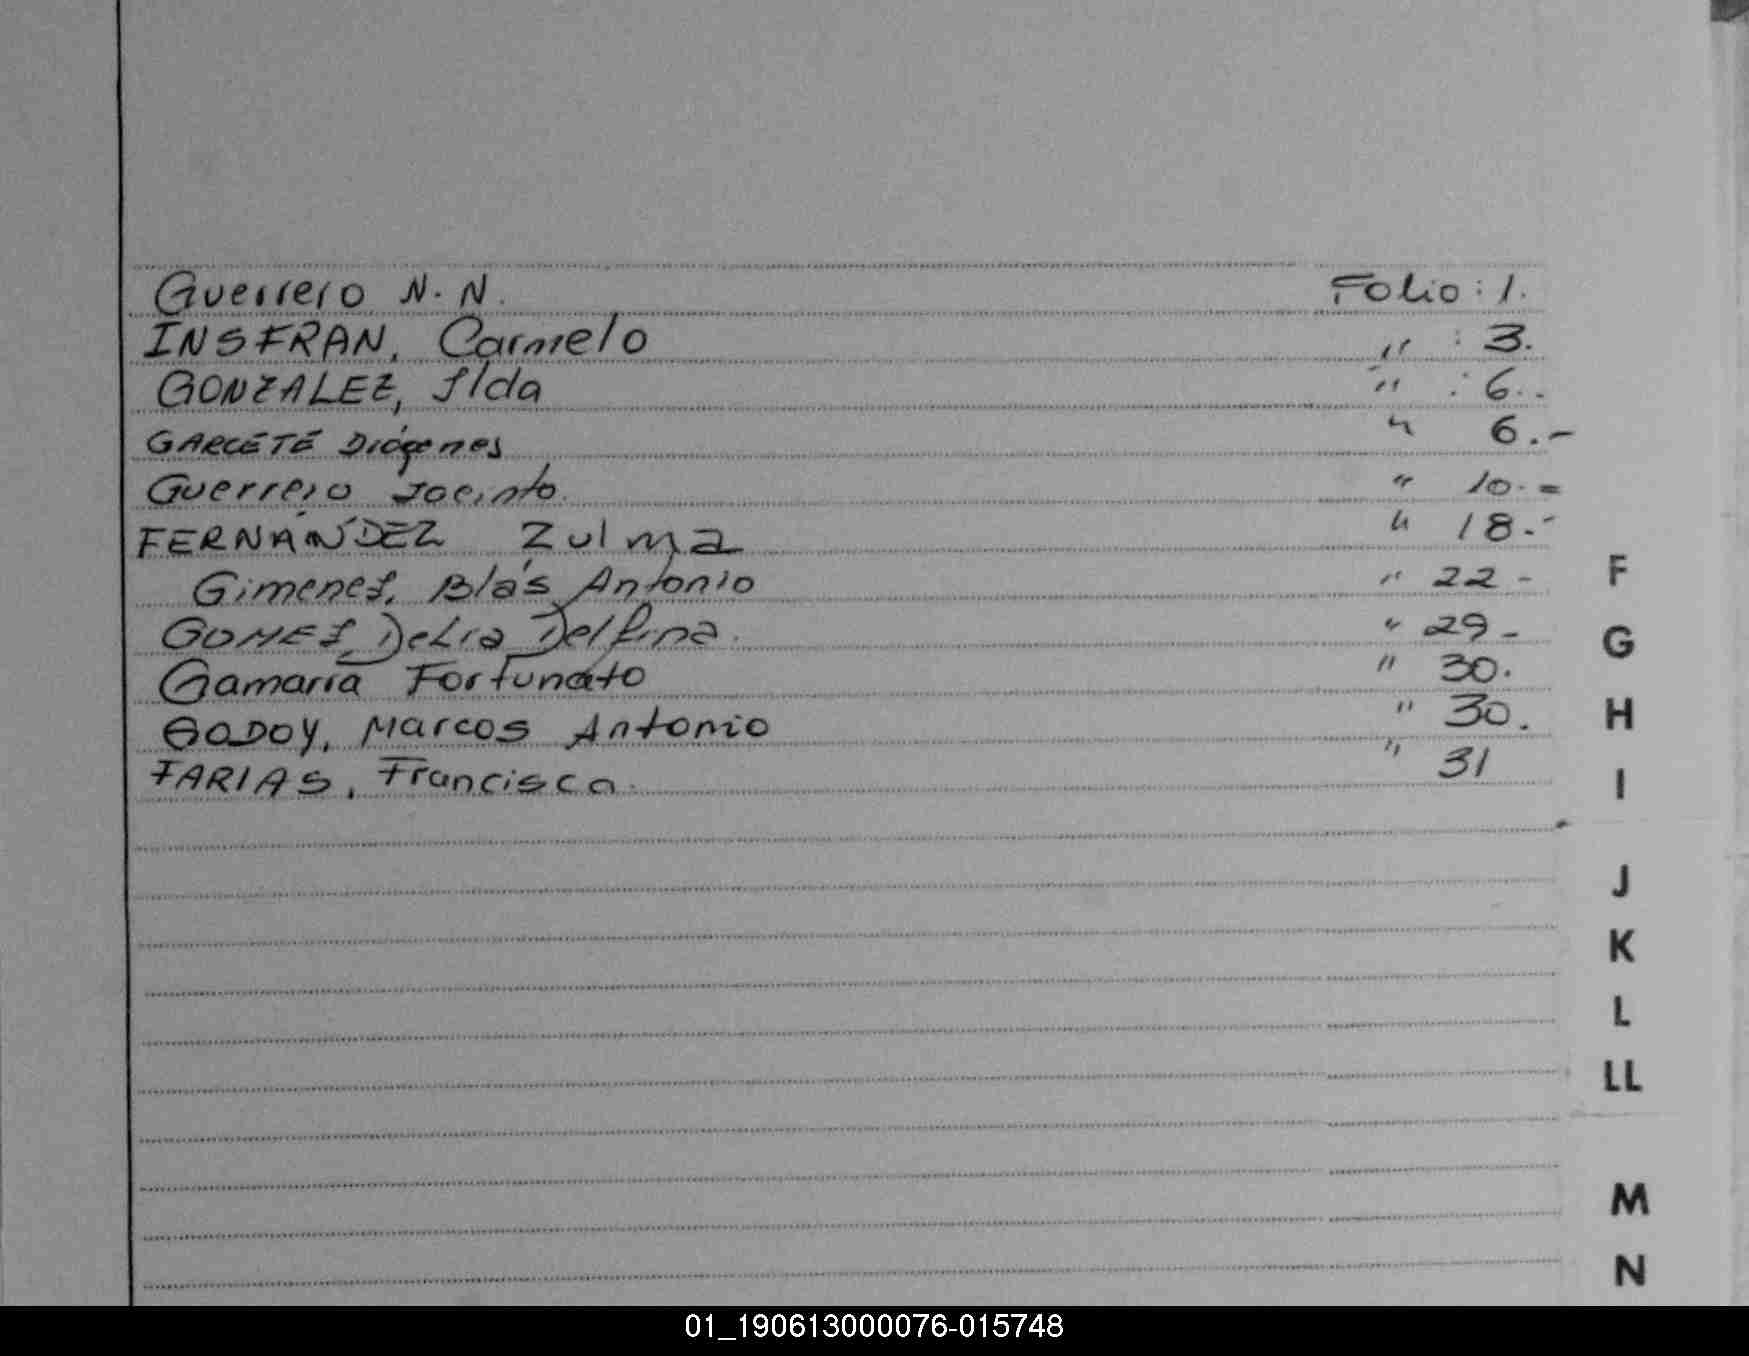 Guerrero N.N. Folio: 1.
INSFRAN, Carmelo " : 3.
GONZALEZ, Ilda " : 6..
GARCETÉ Diógenes " 6.-
Guerrero Jacinto. " 10.=
FERNÁNDEZ Zulma " 18.-
Gimenez, Blás Antonio " 22-
GOMEZ, Delia Delfina. " 29-
Gamarra Fortunato " 30.
GODOY, Marcos Antonio " 30.
FARIAS, Francisca. " 31
F
G
H
I
J
K
L
LL
M
N
01_190613000076-015748